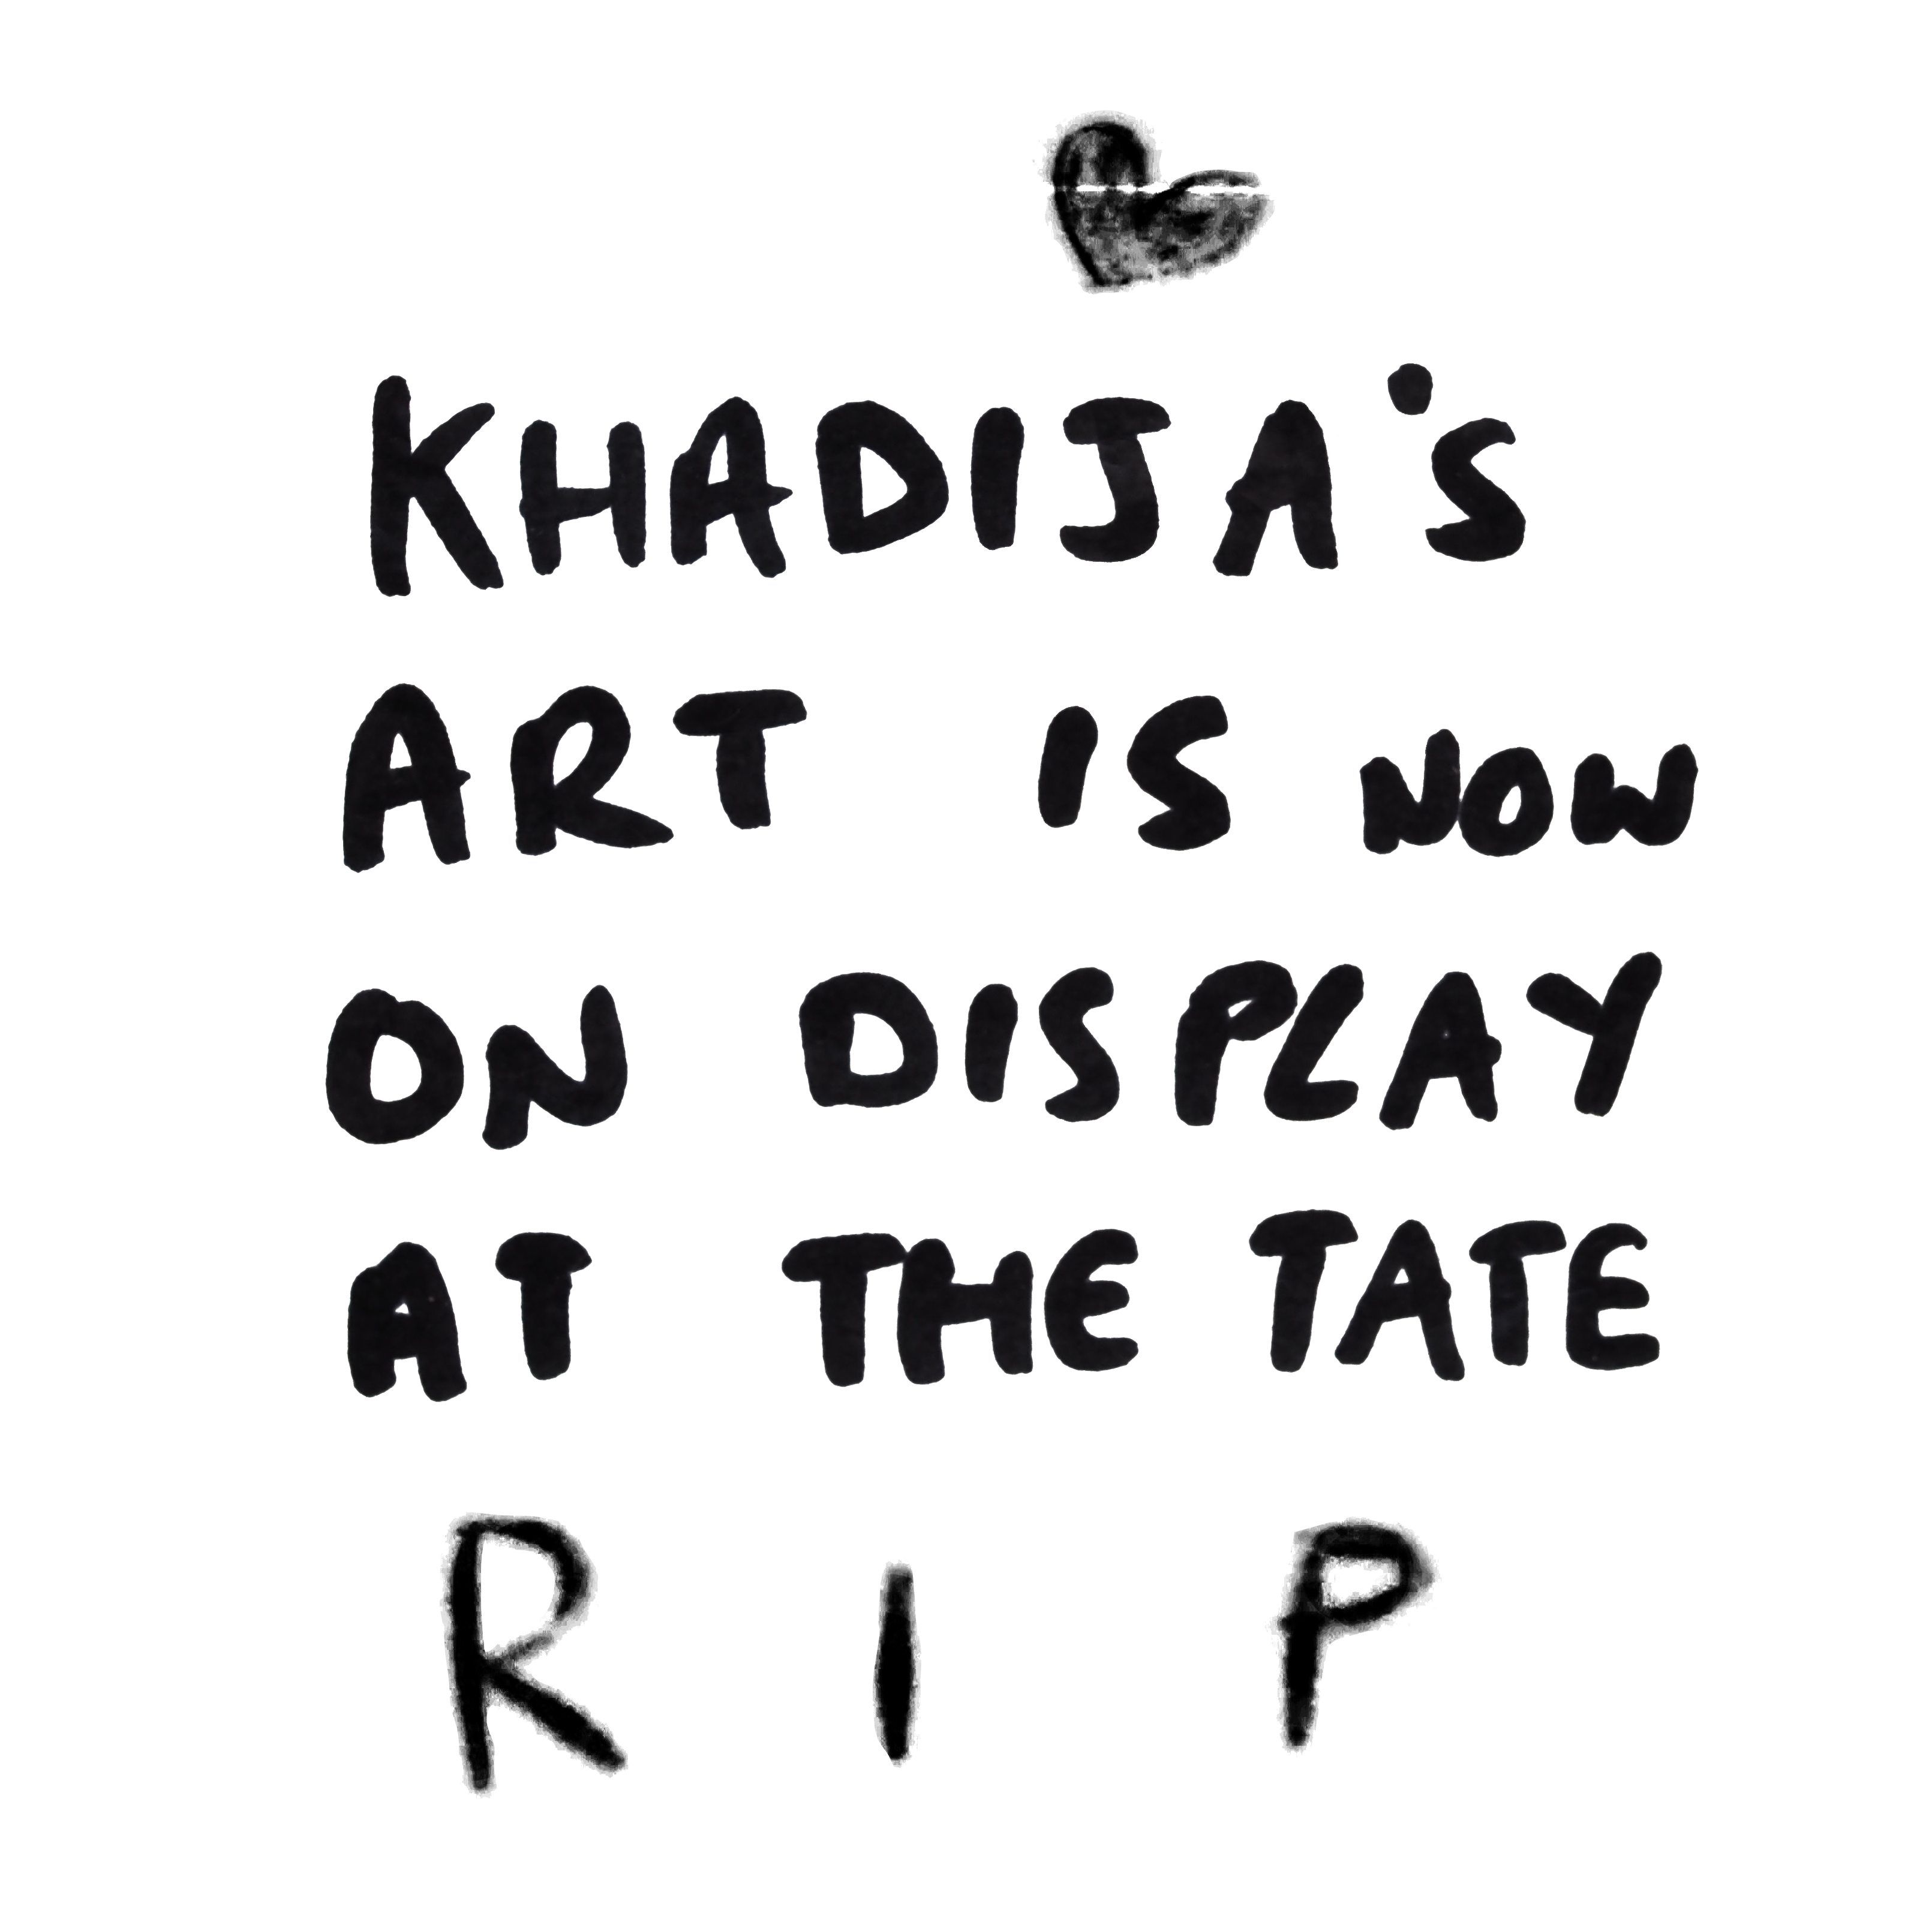 KHADIJA'S
ART IS NOW
ON DISPLAY
AT THE TATE
R I P